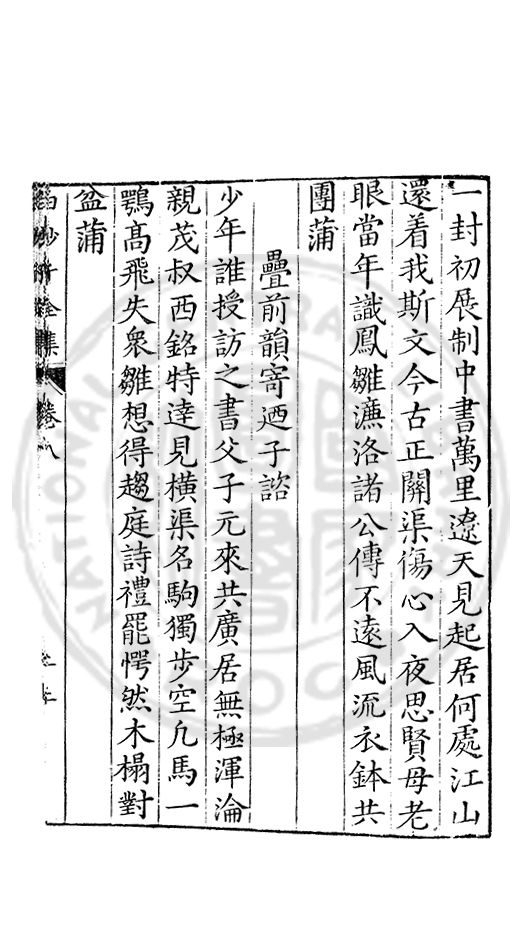 一封初展制中書萬里遼天見起居何處江山
還着我斯文今古正關渠傷心入夜思賢母老
眼當年識鳳雛濂洛諸公傳不遠風流衣鉢共
團蒲
疊前韻寄迺子諮
少年誰授訪之書父子元來共廣居無極渾淪
親茂叔西銘特達見橫渠名駒獨步空凡馬一
鶚高飛失衆雛想得趨庭詩禮罷愕然木榻對
盆蒲
白沙子全集
卷八